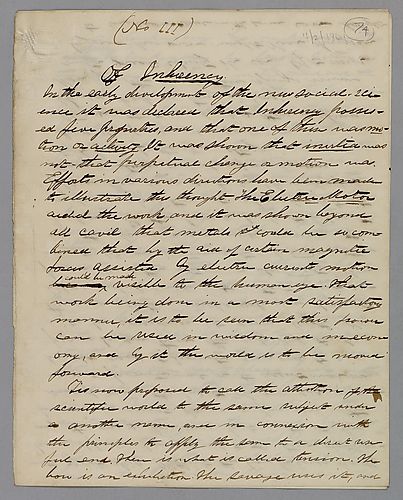 (No III)
74
Of Inherency.
In the early development of the new social sci-
ence it was declared that Inherency possess-
ed five properties, and that one of these was mo-
tion or activity. It was shown that inertia was
not—that perpetual change or motion was.
Efforts in various directions have been made
to illustrate this thought. The Electric Motor
aided the work, and it was shown beyond
all cavil that metals &c could be so com-
bined that by the aid of certain magnetic
forces assisted by electric current motion
could be made visible to the human eye. That
work being done in a most satisfactory
manner, it is to be seen that this power
can be used in wisdom and in econ-
omy, and by it the world is to be moved
forward.
Tis now proposed to call the attention of the
scientific world to the same subject under
another name, and in connexion with
the principles to apply the same to a direct use-
ful end. There is what is called tension. The
bow is an illustration. The savage uses it, and